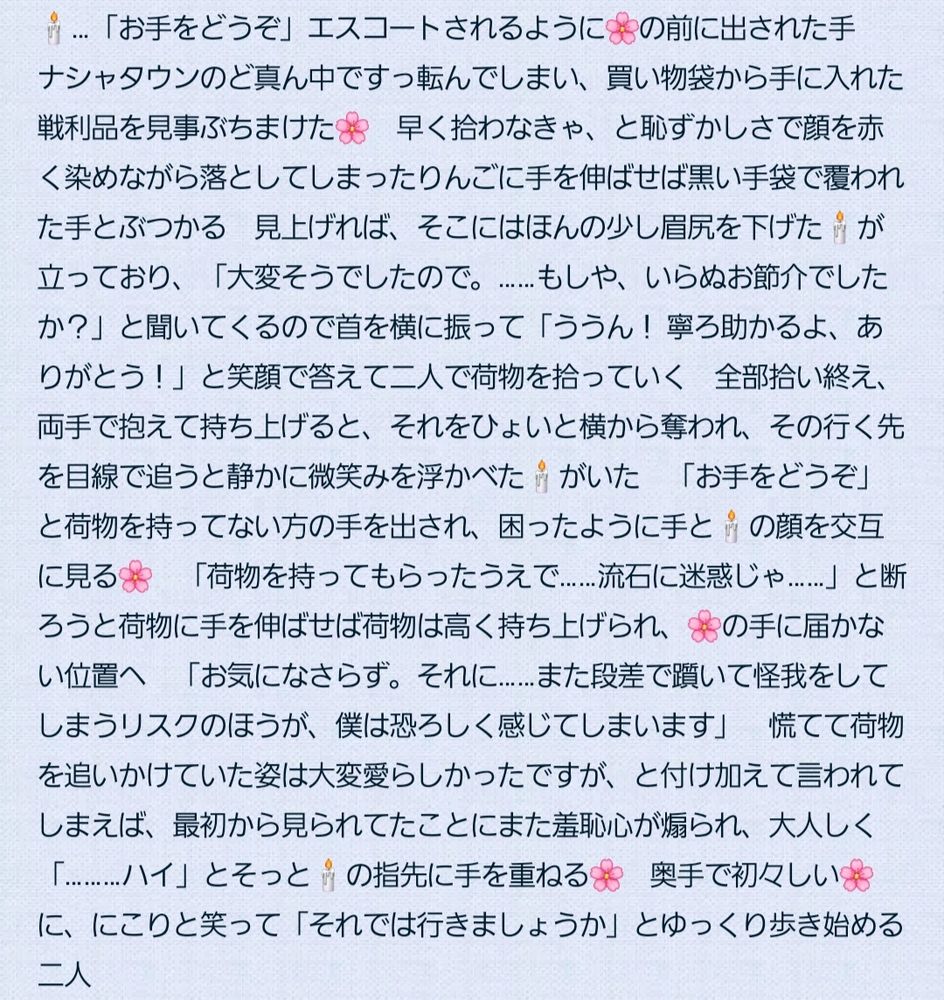 🕯️…「お手をどうぞ」エスコートされるように🌸の前に出された手
ナシャタウンのど真ん中ですっ転んでしまい、買い物袋から手に入れた
戦利品を見事ぶちまけた🌸　早く拾わなきゃ、と恥ずかしさで顔を赤
く染めながら落としてしまったりんごに手を伸ばせば黒い手袋で覆われ
た手とぶつかる　見上げれば、そこにはほんの少し眉尻を下げた🕯️が
立っており、「大変そうでしたので。……もしや、いらぬお節介でした
か？」と聞いてくるので首を横に振って「ううん！ 寧ろ助かるよ、あ
りがとう！」と笑顔で答えて二人で荷物を拾っていく　全部拾い終え、
両手で抱えて持ち上げると、それをひょいと横から奪われ、その行く先
を目線で追うと静かに微笑みを浮かべた🕯️がいた　「お手をどうぞ」
と荷物を持ってない方の手を出され、困ったように手と🕯️の顔を交互
に見る🌸　「荷物を持ってもらったうえで……流石に迷惑じゃ……」と断
ろうと荷物に手を伸ばせば荷物は高く持ち上げられ、🌸の手に届かな
い位置へ　「お気になさらず。それに……また段差で躓いて怪我をして
しまうリスクのほうが、僕は恐ろしく感じてしまいます」　慌てて荷物
を追いかけていた姿は大変愛らしかったですが、と付け加えて言われて
しまえば、最初から見られてたことにまた羞恥心が煽られ、大人しく
「………ハイ」とそっと🕯️の指先に手を重ねる🌸　奥手で初々しい🌸
に、にこりと笑って「それでは行きましょうか」とゆっくり歩き始める
二人